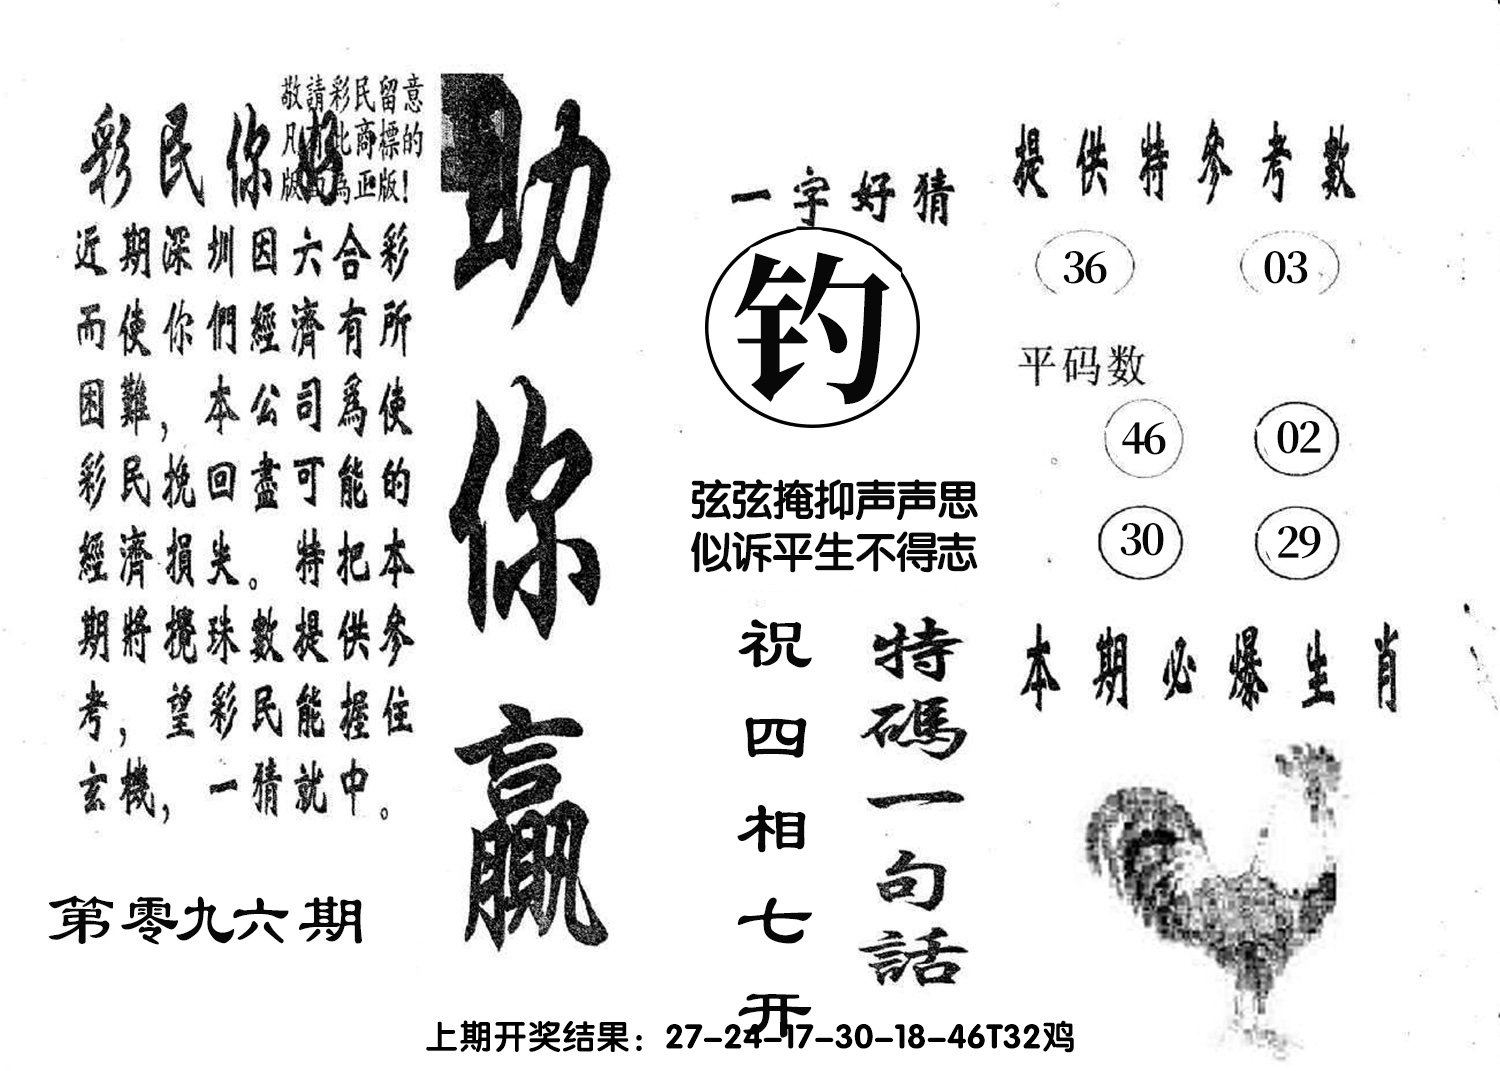 敬請彩民留意
凡有此商標的
版面為正版!
彩民你好
近期深圳因六合彩
而使你們經濟有所
困難，本公司爲使
彩民挽回盡可能的
經濟損失。特把本
期將攪珠數提供參
考，望彩民能握住
玄機，一猜就中。
第零九六期
助你贏
一字好猜
钓
弦弦掩抑声声思
似诉平生不得志
特碼一句話
祝四相七开
提供特參考數
36 03
平码数
46 02
30 29
本期必爆生肖
上期开奖结果：27-24-17-30-18-46T32鸡